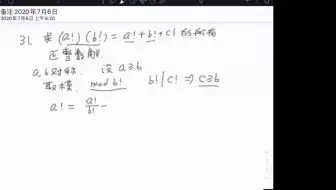 备注 2020年7月6日
2020年7月6日 上午8:20
31. 求 (a!)(b!) = a! + b! + c! 的所有
正整数解.
a,b对称, 设 a≥b
取模, mod b! b! | c! ⇒ c≥b
a! = a!/b! −